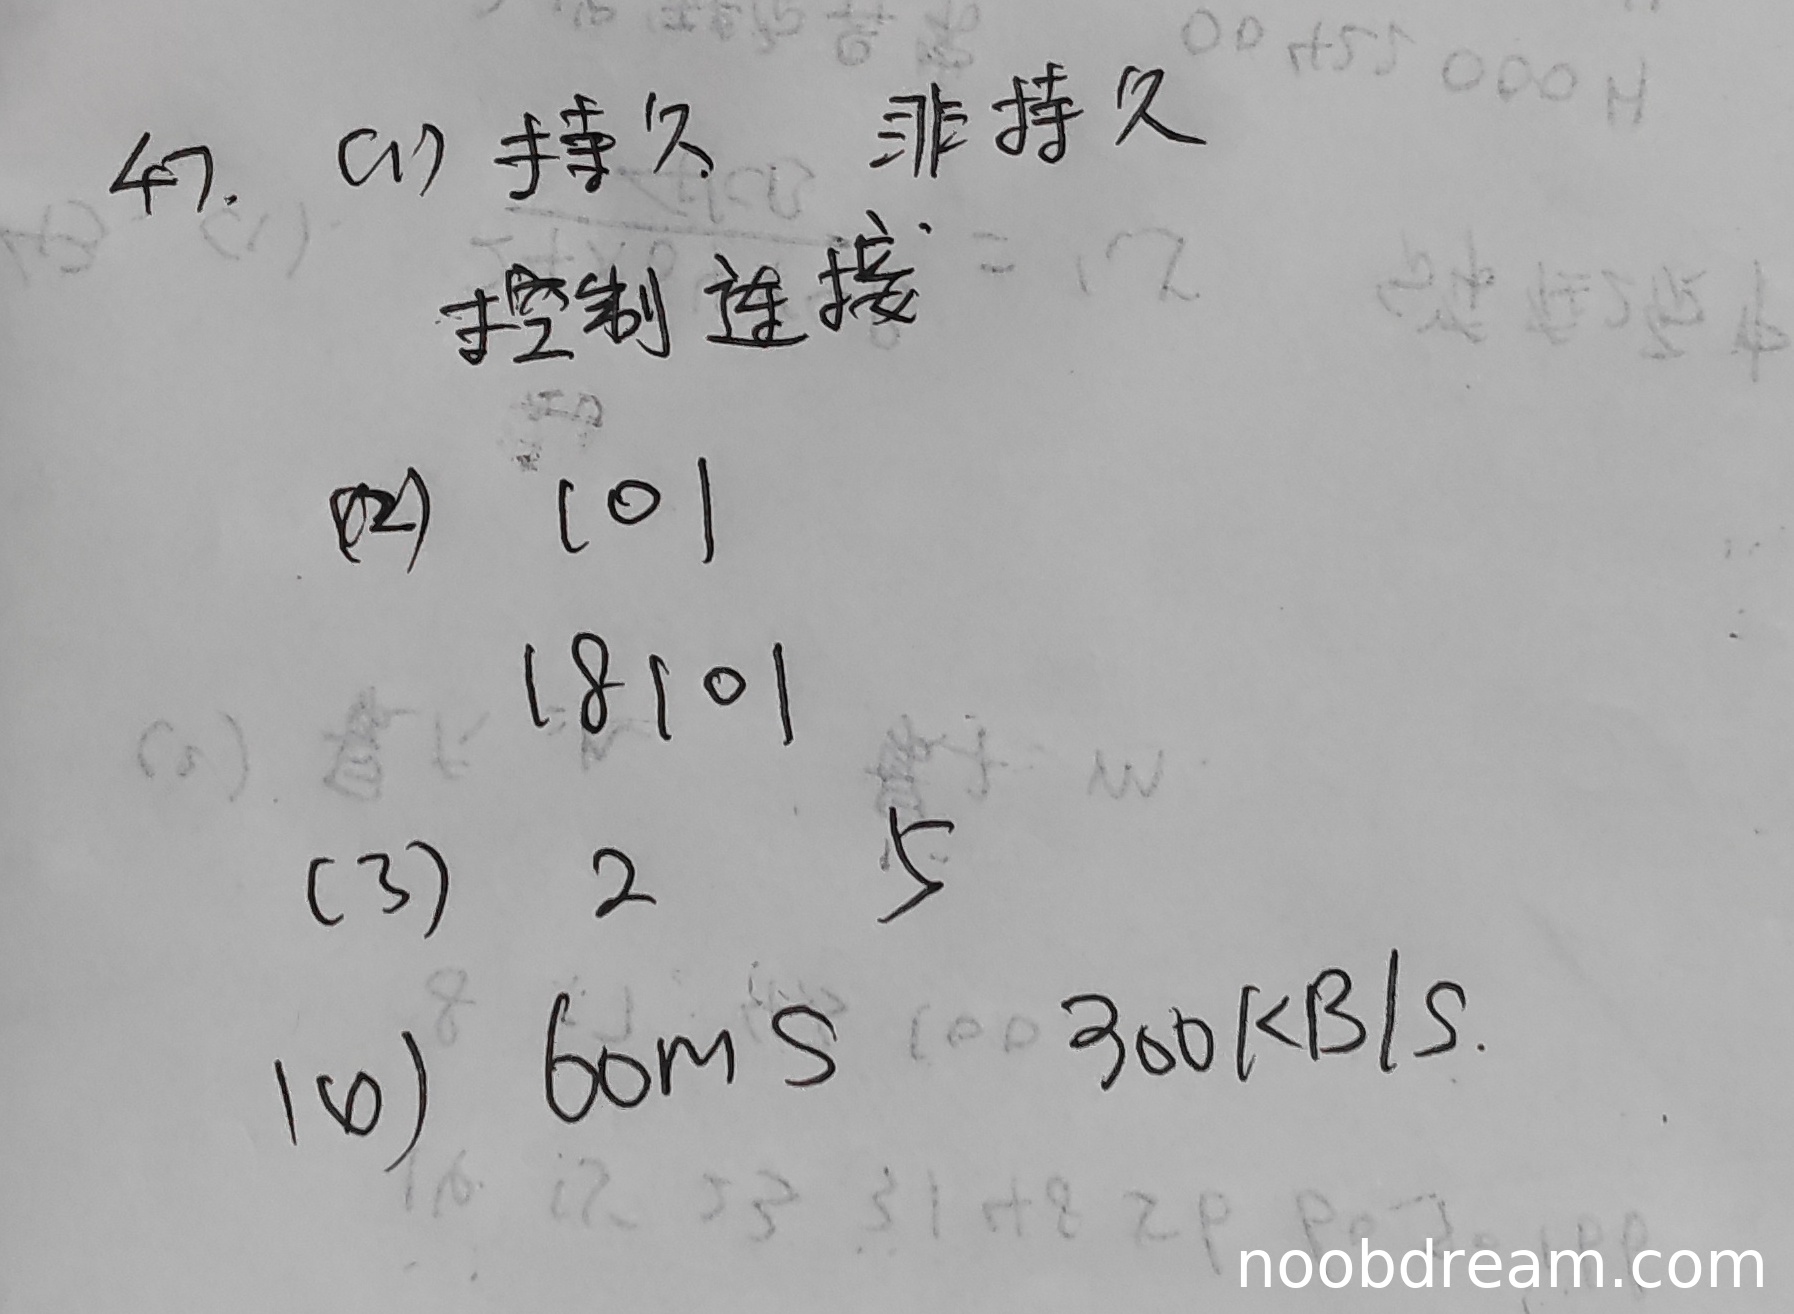 47. (1) 持久 非持久
控制连接
(2) 101
18101
(3) 2 5
(4) 60ms 300KB/S.
noobdream.com